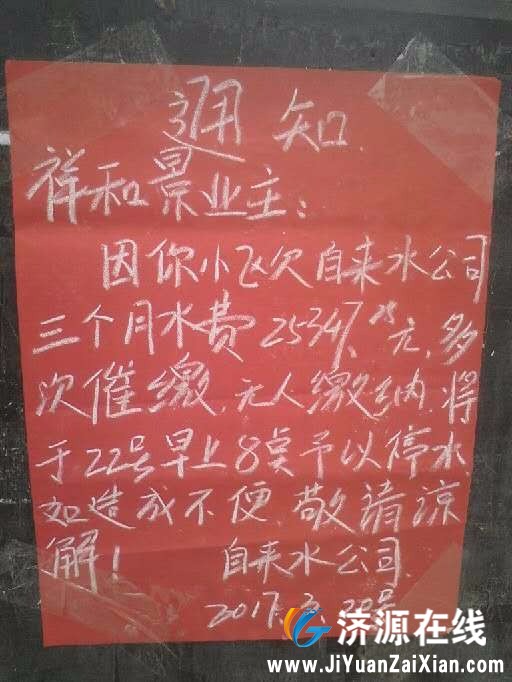 通知
祥和景业主:
因你小区欠自来水公司
三个月水费25347.25元,多
次催缴,无人缴纳,将
于22号早上8点予以停水
如造成不便,敬请谅
解!自来水公司
2017.3.20号
济源在线
www.JiYuanZaiXian.com